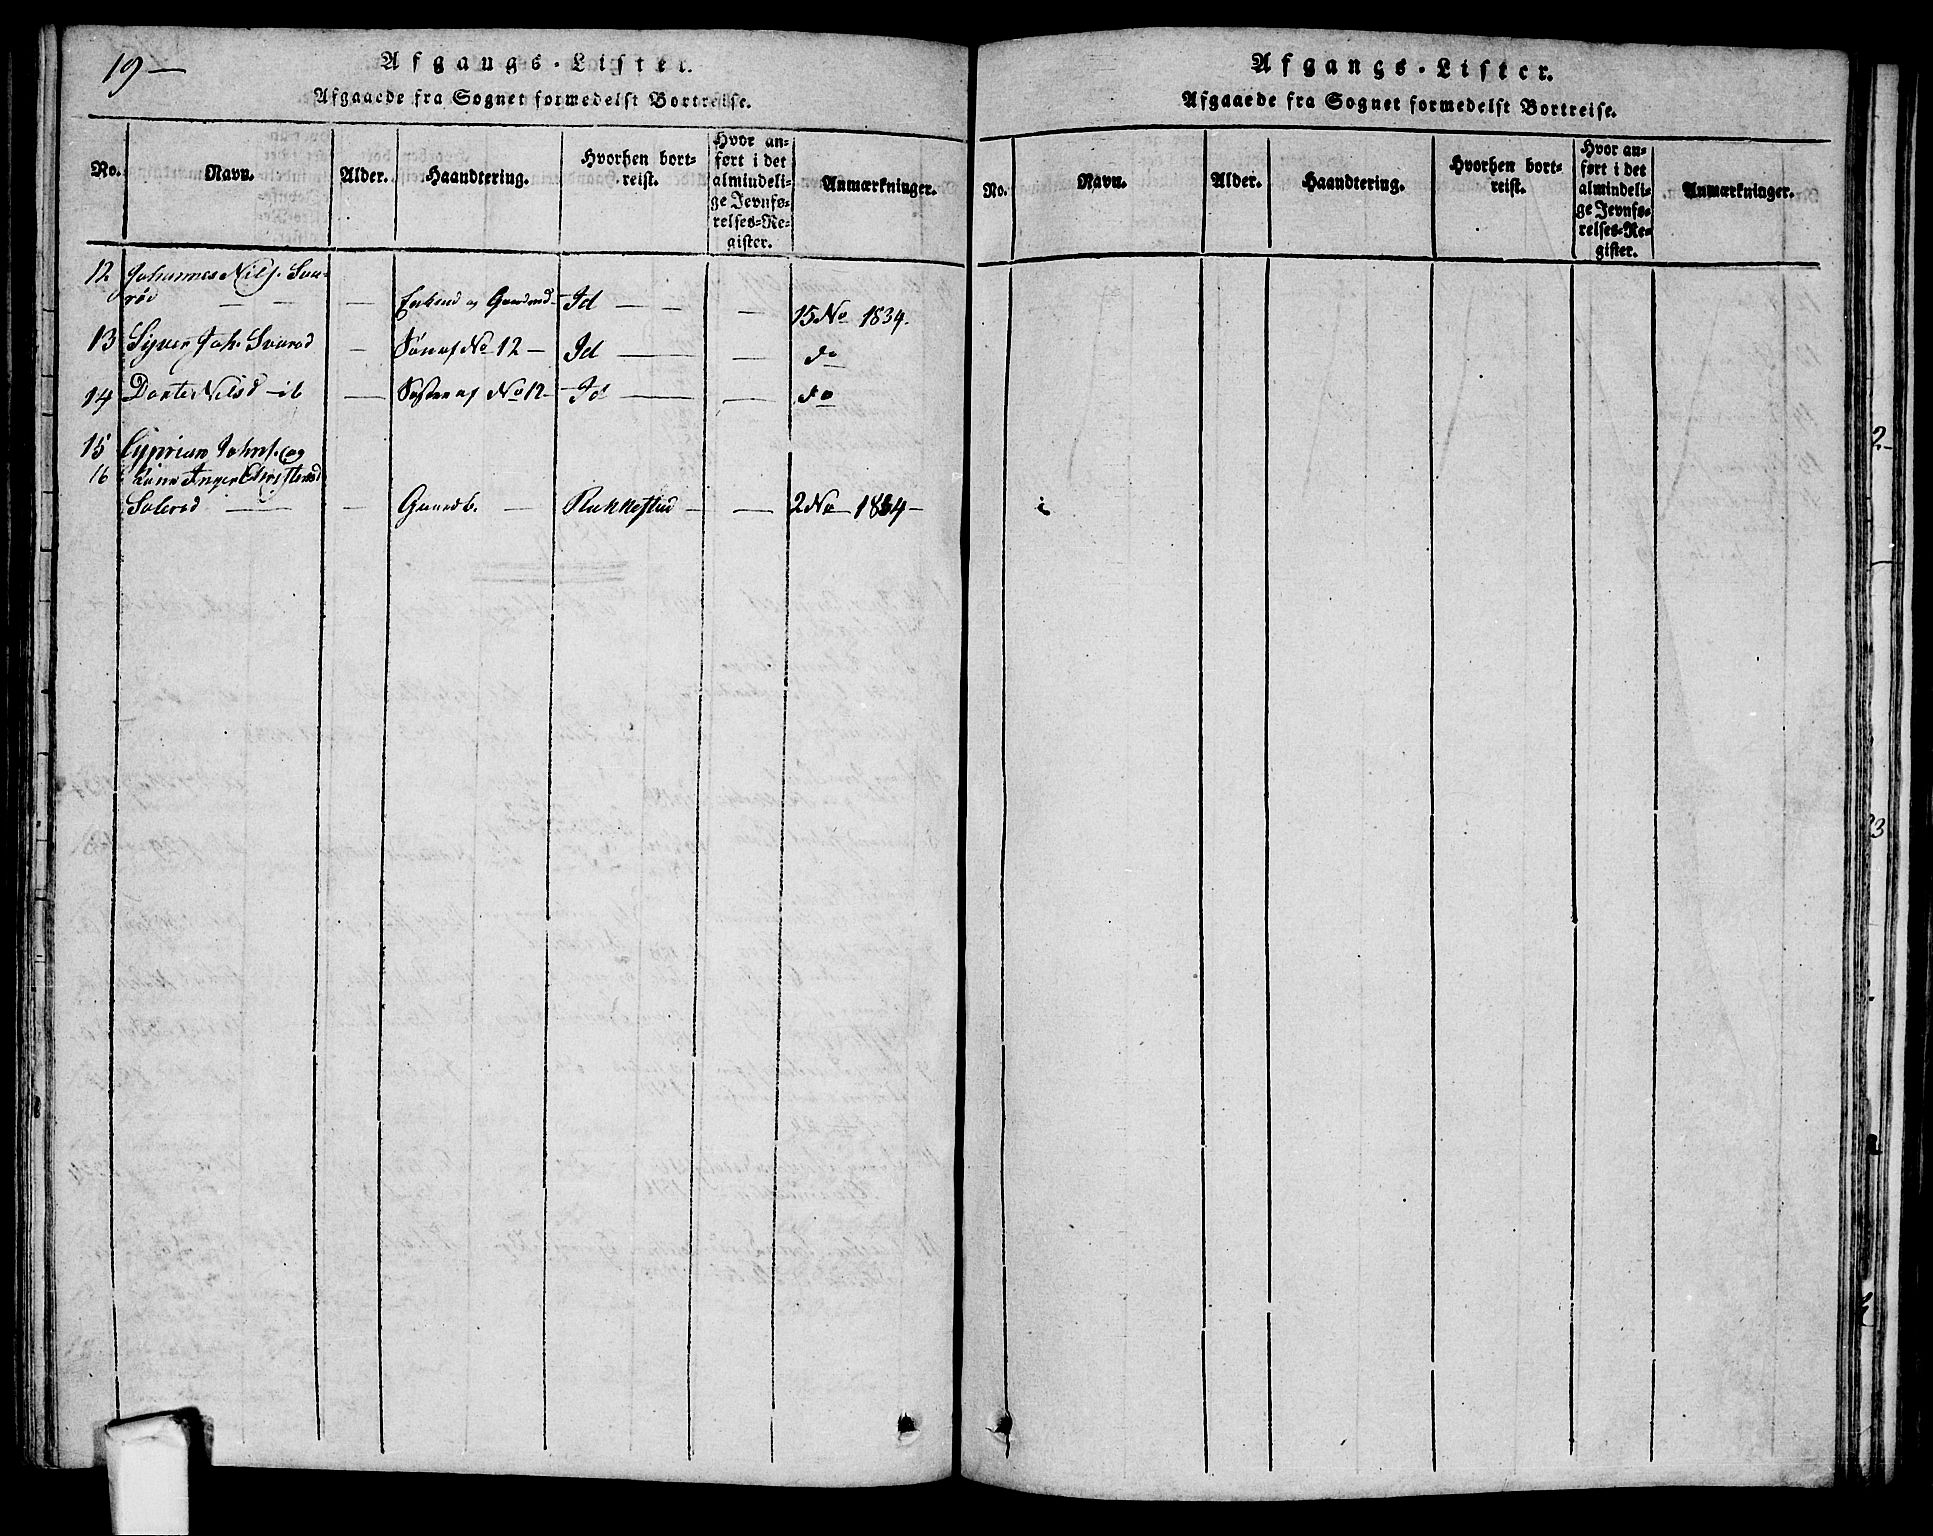 19 —
Afgangs-Lister.
Afgaaede fra Sognet formedelst Bortreise.
No. Navn. Alder. Haandtering. Hvorhen bortreist. Hvor anført i det almindelige Jevnførelses-Register. Anmærkninger.
12 Johannes Nils. Svarød — — — Enkemd og Gaardmd — Id — — — 15 No 1834.
13 Syver Joh. Svarød — Søn af No 12 — Id — — — do
14 Dorte Nilsd — ib — Søster af No 12 — Id — — — do
15 Cyprian Johns. og
16 Kone Inger Christensd
Solerød — — Gaardb. — Rakkestad — — 2 No 1834 —
Afgangs-Lister.
Afgaaede fra Sognet formedelst Bortreise.
No. Navn. Alder. Haandtering. Hvorhen bortreist. Hvor anført i det almindelige Jevnførelses-Register. Anmærkninger.